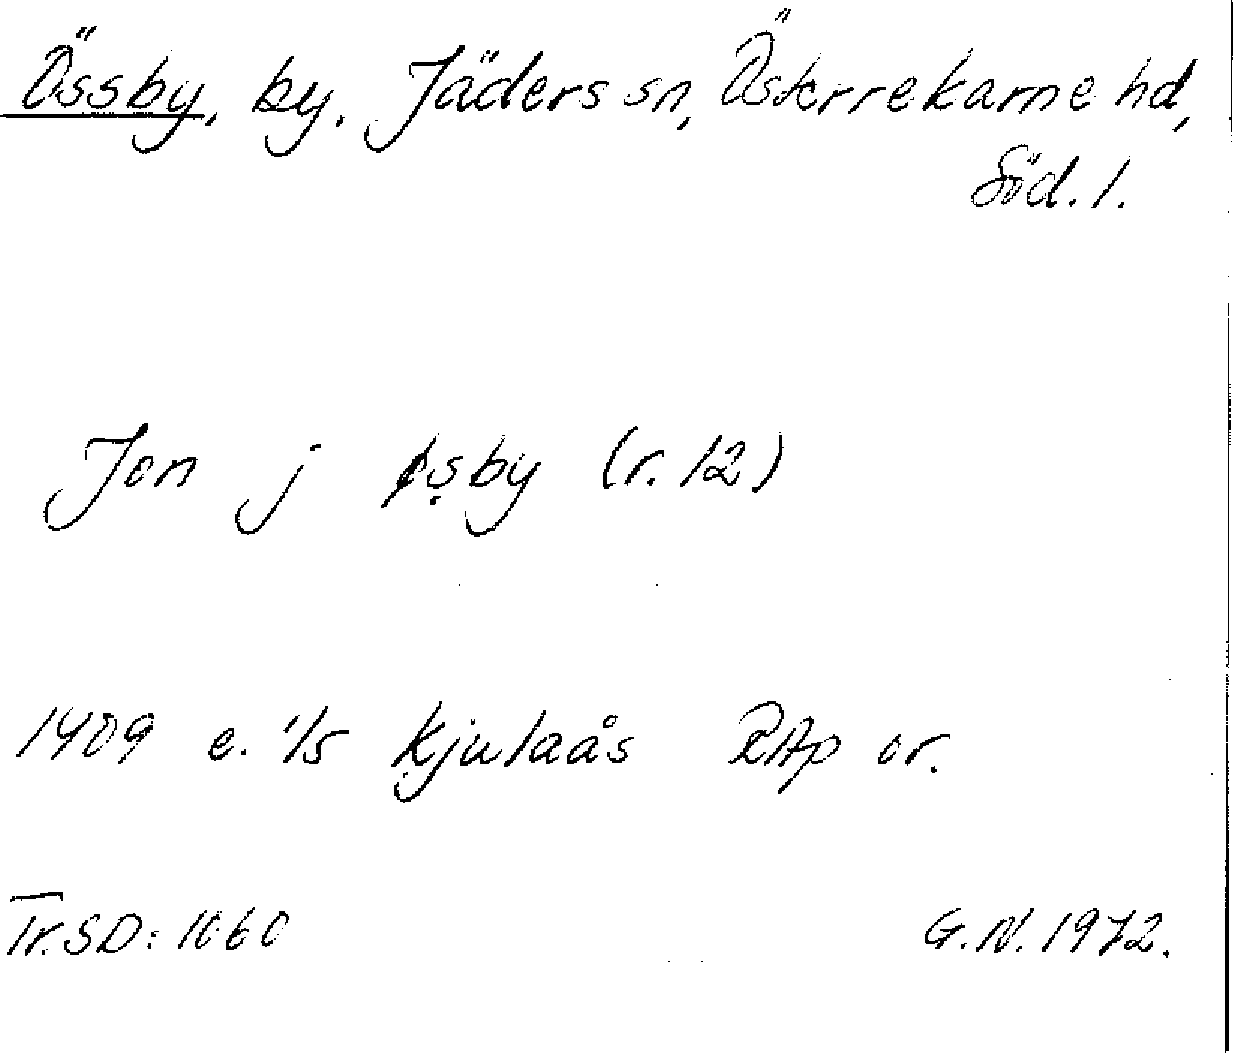 Össby, by. Jäders sn, Österrekarne hd,
Söd. l.
Jon j øsby (r. 12)
1409 e. 1/5 Kjulaås RAp or.
Tr. SD: 1060
G. N. 1972.